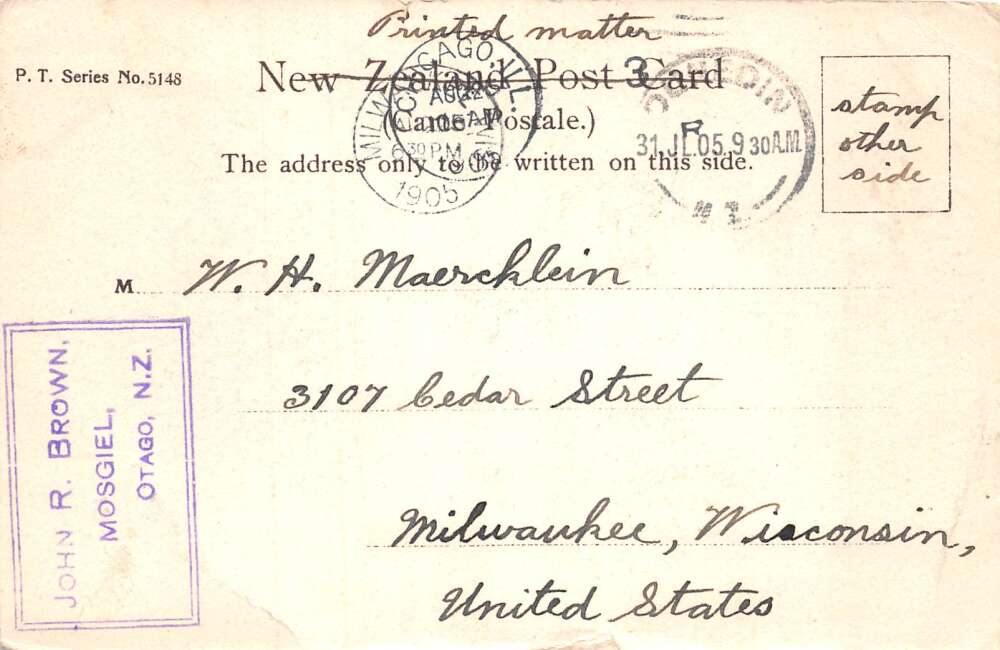 Printed matter
P. T. Series No. 5148
New Zealand Post Card
(Carte Postale.)
The address only to be written on this side.
CHICAGO, ILL.
AUG 22
MILWAUKEE
6 30 PM
1905
3
DUNEDIN
31.JL.05.9 30 A.M.
stamp
other
side
M W. H. Maercklein
3107 Cedar Street
Milwaukee, Wisconsin,
United States
JOHN R. BROWN,
MOSGIEL,
OTAGO, N.Z.